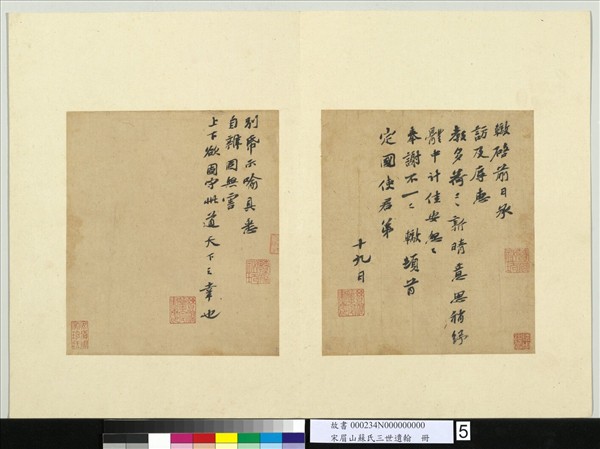 轍啓前日承
訪及辱惠
教多荷〻新晴意思稍紓
體中計佳安怱〻
奉謝不一〻轍頓首
定國使君弟
十九日
別帋示喻具悉
自辯固無害
上下欲固守此道天下之幸也
故書 000234N000000000
宋眉山蘇氏三世遺翰 冊
5